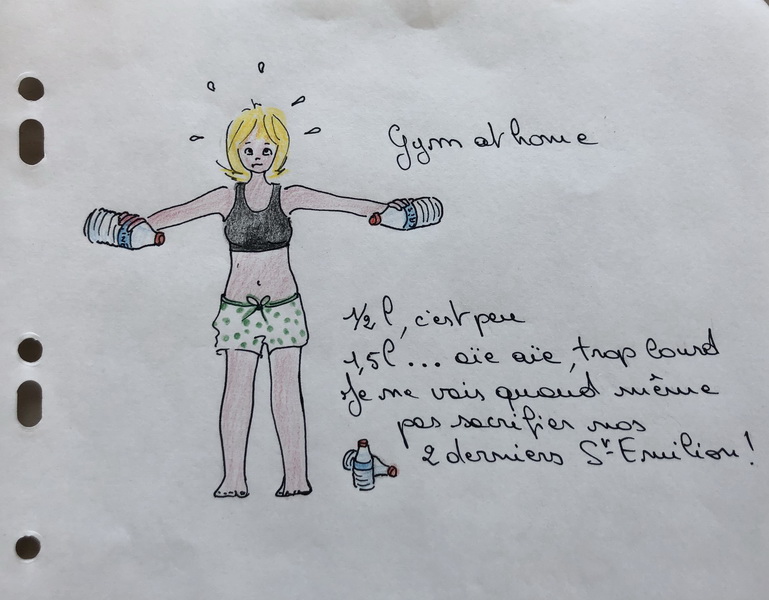 Gym at home
1/2 l, c'est peu
1,5l ... aïe aïe, trop lourd
Je ne vais quand même
pas sacrifier nos
2 derniers St-Emilion!